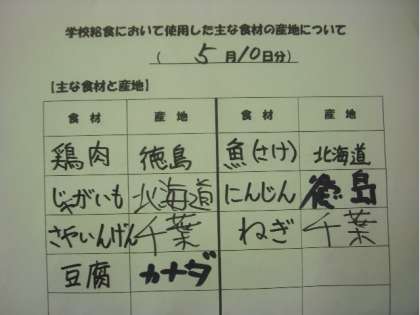 学校給食において使用した主な食材の産地について
( 5月10日分)
【主な食材と産地】
食材 産地 食材 産地
鶏肉 徳島 魚(さけ) 北海道
じゃがいも 北海道 にんじん 徳島
さやいんげん 千葉 ねぎ 千葉
豆腐 カナダ